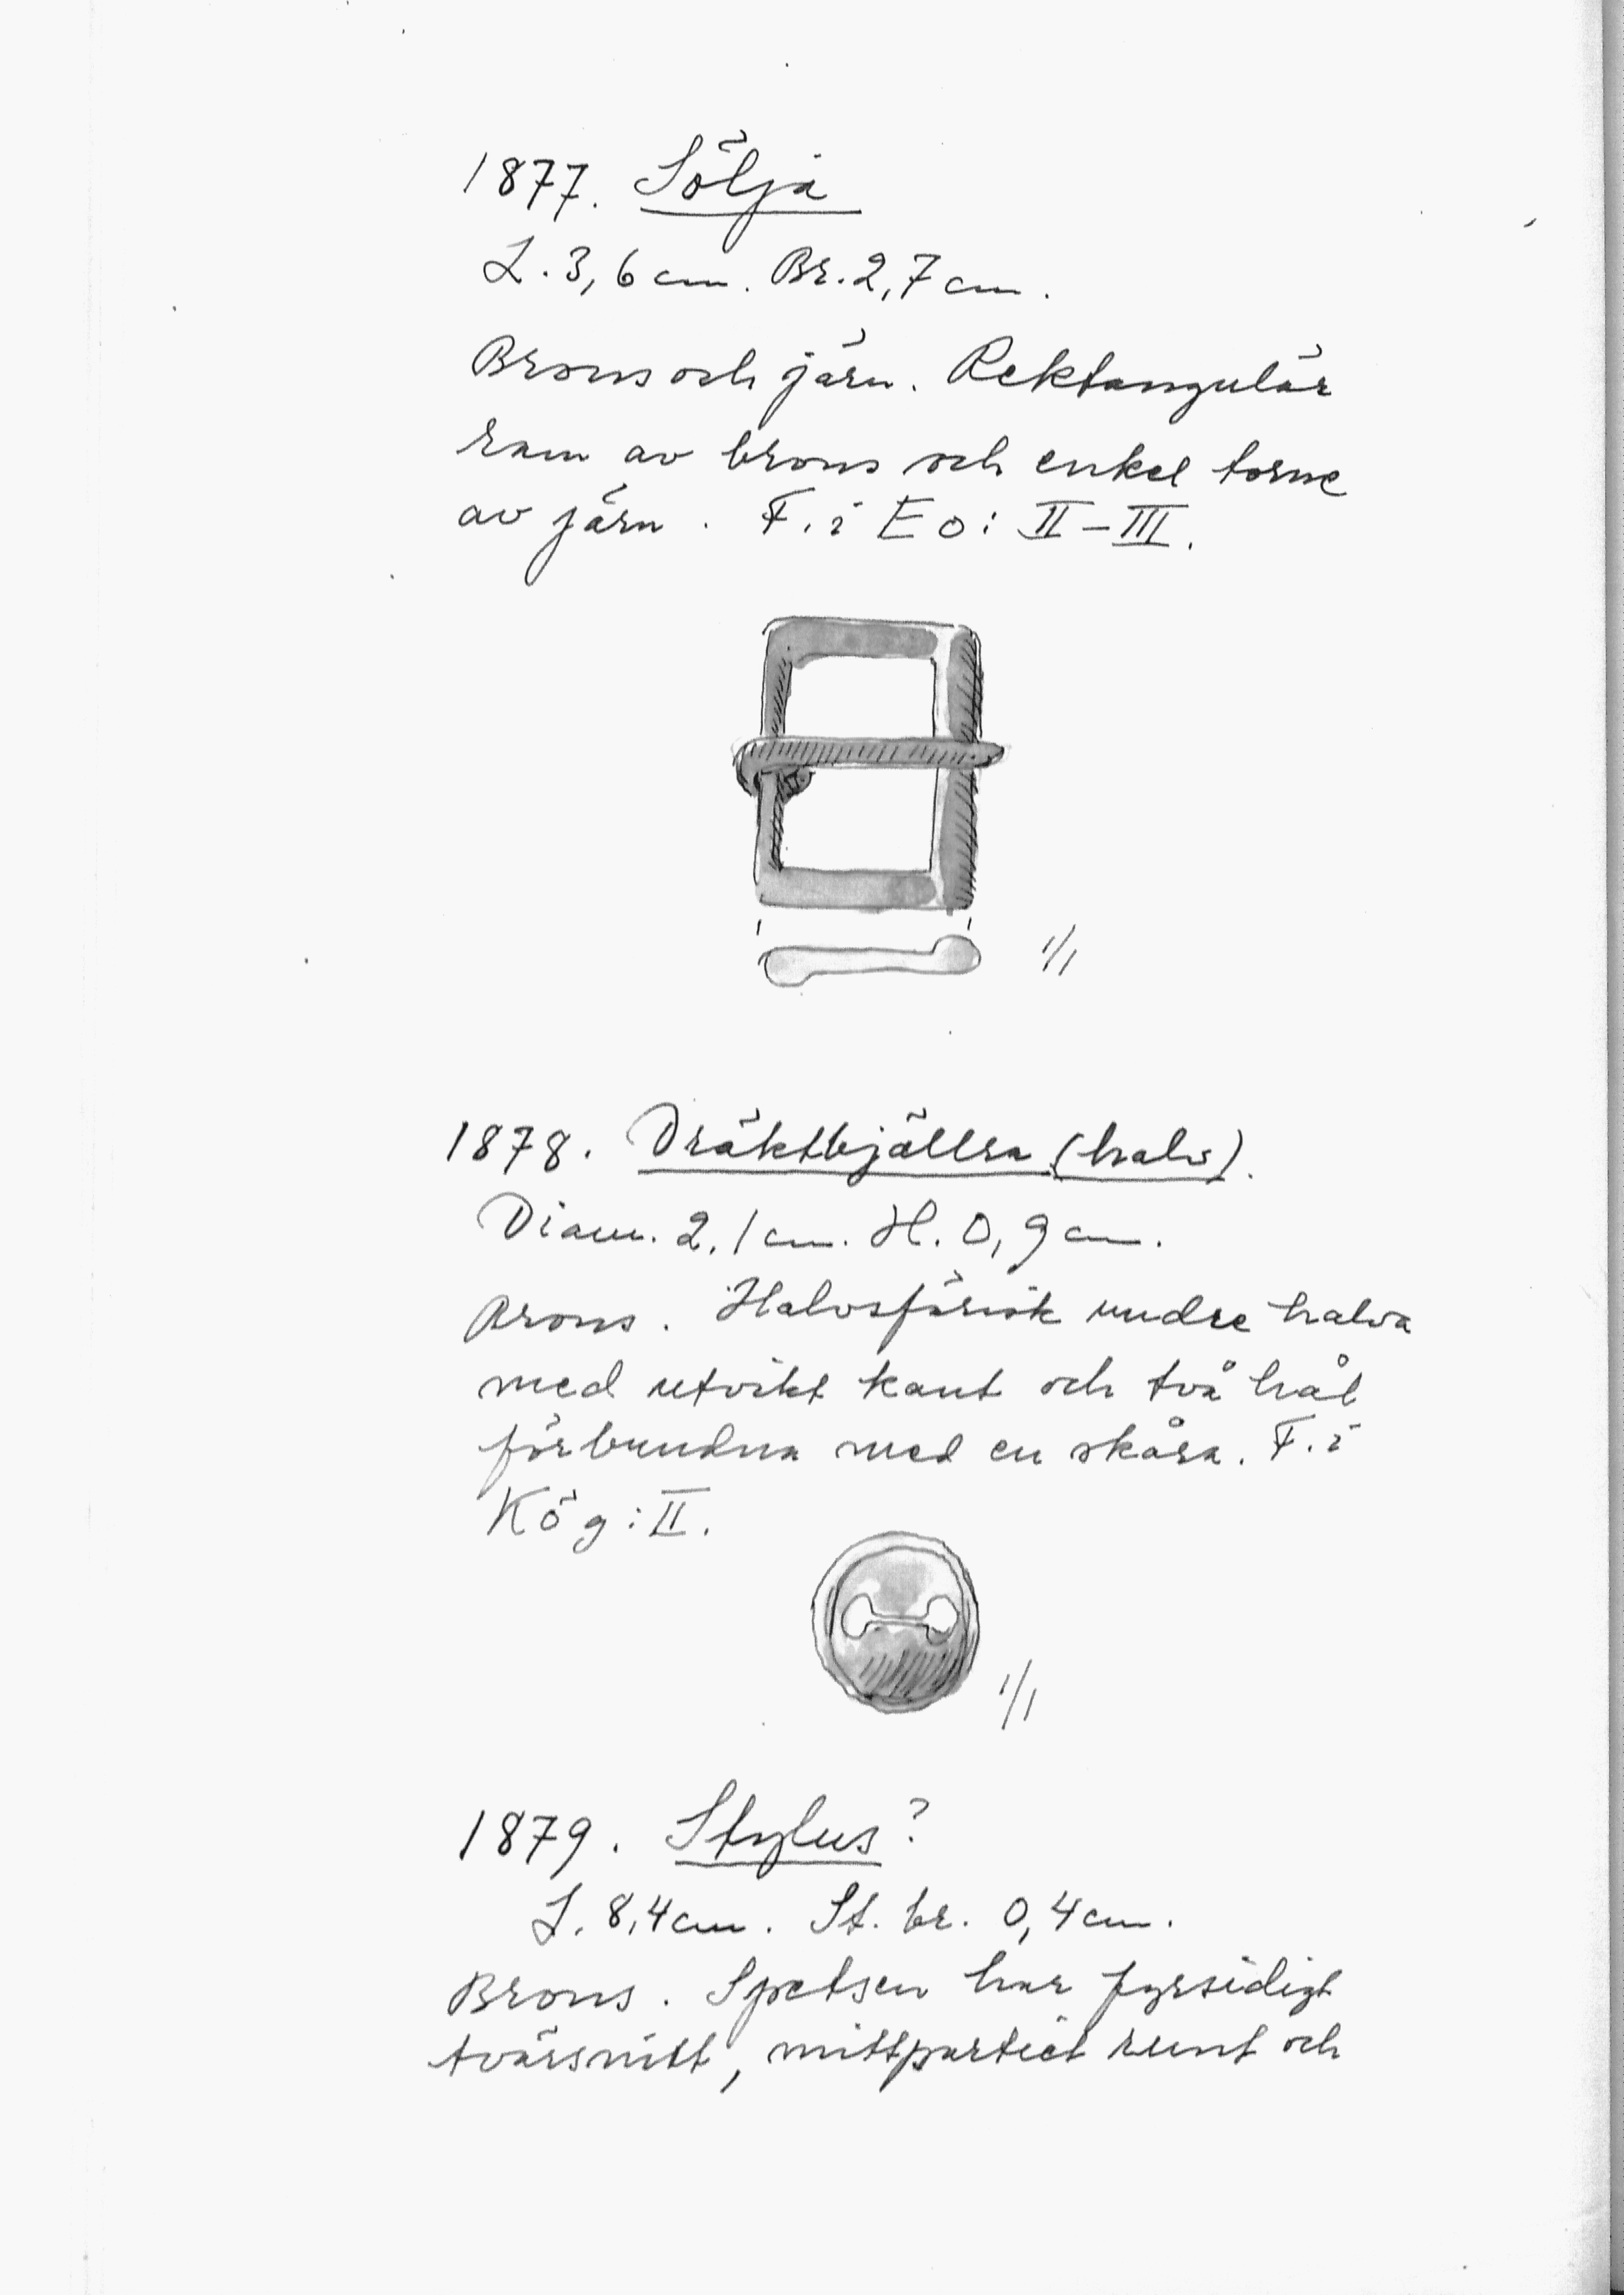 1877. Sölja
L. 3,6 cm. Br. 2,7 cm.
Brons och järn. Rektangulär
ram av brons och enkel torne
av järn. F. i Eo: II–III.
1/1
1878. Dräktbjällra (halv).
Diam. 2,1 cm. H. 0,9 cm.
Brons. Halvsfärisk undre halva
med utvikt kant och två hål
förbundna med en skåra. F. i
Kög: II.
1/1
1879. Stylus?
L. 8,4 cm. St. br. 0,4 cm.
Brons. Spetsen har fyrsidigt
tvärsnitt, mittpartiet runt och